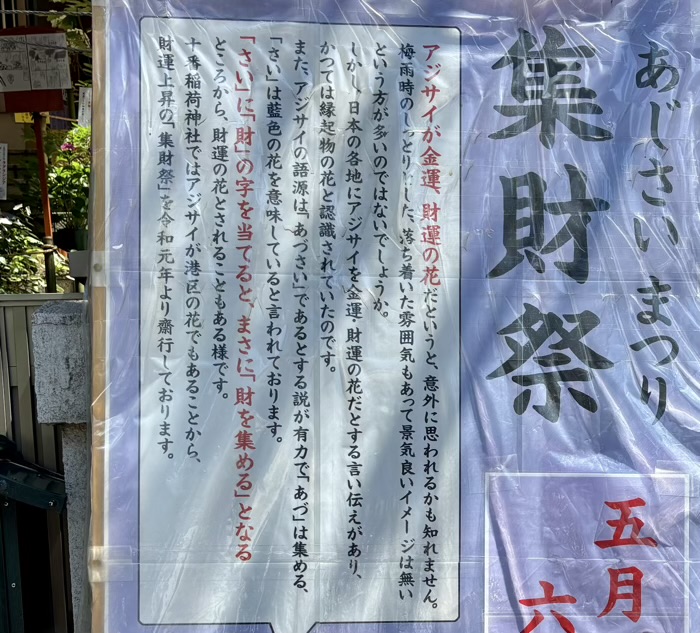 あじさいまつり
集財祭
五月
六
アジサイが金運、財運の花だというと、意外に思われるかも知れません。
梅雨時のしっとりとした、落ち着いた雰囲気もあって景気良いイメージは無い
という方が多いのではないでしょうか。
しかし、日本の各地にアジサイを金運・財運の花だとする言い伝えがあり、
かつては縁起物の花と認識されていたのです。
また、アジサイの語源は「あづさい」であるとする説が有力で「あづ」は集める、
「さい」は藍色の花を意味していると言われております。
「さい」に「財」の字を当てると、まさに「財を集める」となる
ところから、財運の花とされることもある様です。
十番稲荷神社ではアジサイが港区の花でもあることから、
財運上昇の「集財祭」を令和元年より齋行しております。